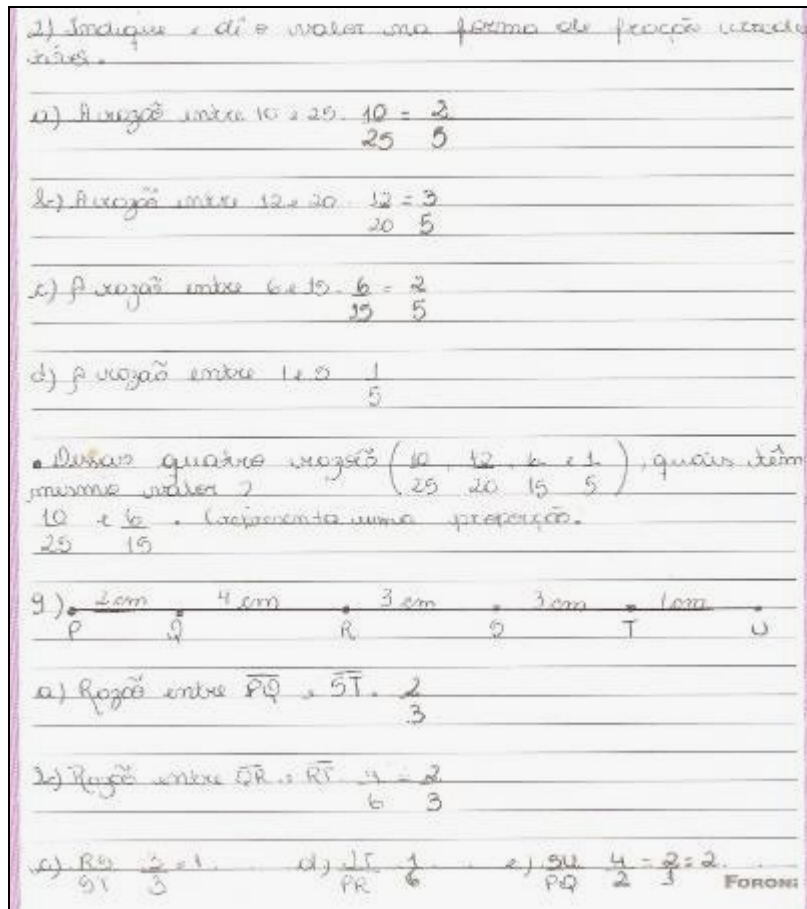 2) Indique e dê o valor na forma de fração irredu
tível.
a) A razão entre 10 e 25. 10/25 = 2/5
b) A razão entre 12 e 20. 12/20 = 3/5
c) A razão entre 6 e 15. 6/15 = 2/5
d) A razão entre 1 e 5 1/5
• Dessas quatro razões (10/25, 12/20, 6/15 e 1/5), quais têm
mesmo valor?
10/25 e 6/15. (representa uma proporção.
9) 2 cm 4 cm 3 cm 3 cm 1 cm
P Q R S T U
a) Razão entre PQ e ST. 2/3
b) Razão entre QR e RT. 4/6 = 2/3
c) RS/ST 3/3 = 1. d) UT/PR 1/6. e) SU/PQ 4/2 = 2/1 = 2.
FORONI